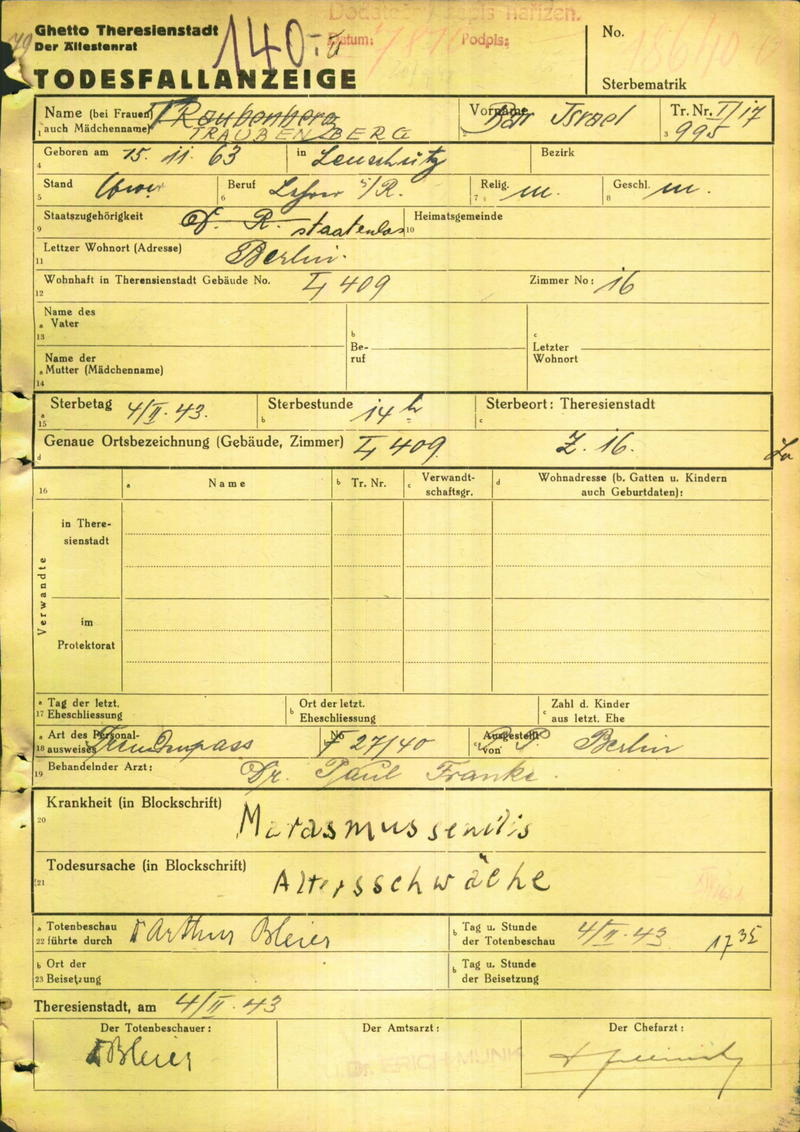 Ghetto Theresienstadt
Der Ältestenrat
140.-
Dodatečný zápis nařízen.
Datum:
Podpis:
No.
TODESFALLANZEIGE
Sterbematrik
Name (bei Frauen
1 auch Mädchenname)
Traubenberg
TRAUBENBERG
Vorname
2
Israel
Tr. Nr. I/17
3 995
4 Geboren am 15. 11. 63 in Bezirk
5 Stand
6 Beruf Lehrer i/R.
7 Relig. m.
8 Geschl. m.
9 Staatszugehörigkeit D. R. staatenlos
10 Heimatsgemeinde
11 Letzter Wohnort (Adresse) Berlin.
12 Wohnhaft in Therensienstadt Gebäude No. L 409 Zimmer No: 16
Name des
a Vater
13
b Be-
ruf
c Letzter
Wohnort
Name der
a Mutter (Mädchenname)
14
a Sterbetag 4/II. 43.
15
b Sterbestunde 14 h
c Sterbeort: Theresienstadt
d Genaue Ortsbezeichnung (Gebäude, Zimmer) L 409 Z. 16.
16
a Name
b Tr. Nr.
c Verwandt-
schaftsgr.
d Wohnadresse (b. Gatten u. Kindern
auch Geburtdaten):
Verwandte
in There-
sienstadt
im
Protektorat
a Tag der letzt.
17 Eheschliessung
b Ort der letzt.
Eheschliessung
c Zahl d. Kinder
aus letzt. Ehe
a Art des Personal-
18 ausweises Fremdenpass
b No 27/40
c Ausgestellt
von P. P. Berlin
19 Behandelnder Arzt: Dr. Paul Franke.
Krankheit (in Blockschrift)
20
Marasmus senilis
Todesursache (in Blockschrift)
21
Altersschwäche
a Totenbeschau
22 führte durch Dr Arthur Bleier
b Tag u. Stunde
der Totenbeschau 4/II. 43 17 35
b Ort der
23 Beisetzung
b Tag u. Stunde
der Beisetzung
Theresienstadt, am 4/II. 43
Der Totenbeschauer:
Dr Bleier
Der Amtsarzt:
Dr. ERICH MUNK
Der Chefarzt: